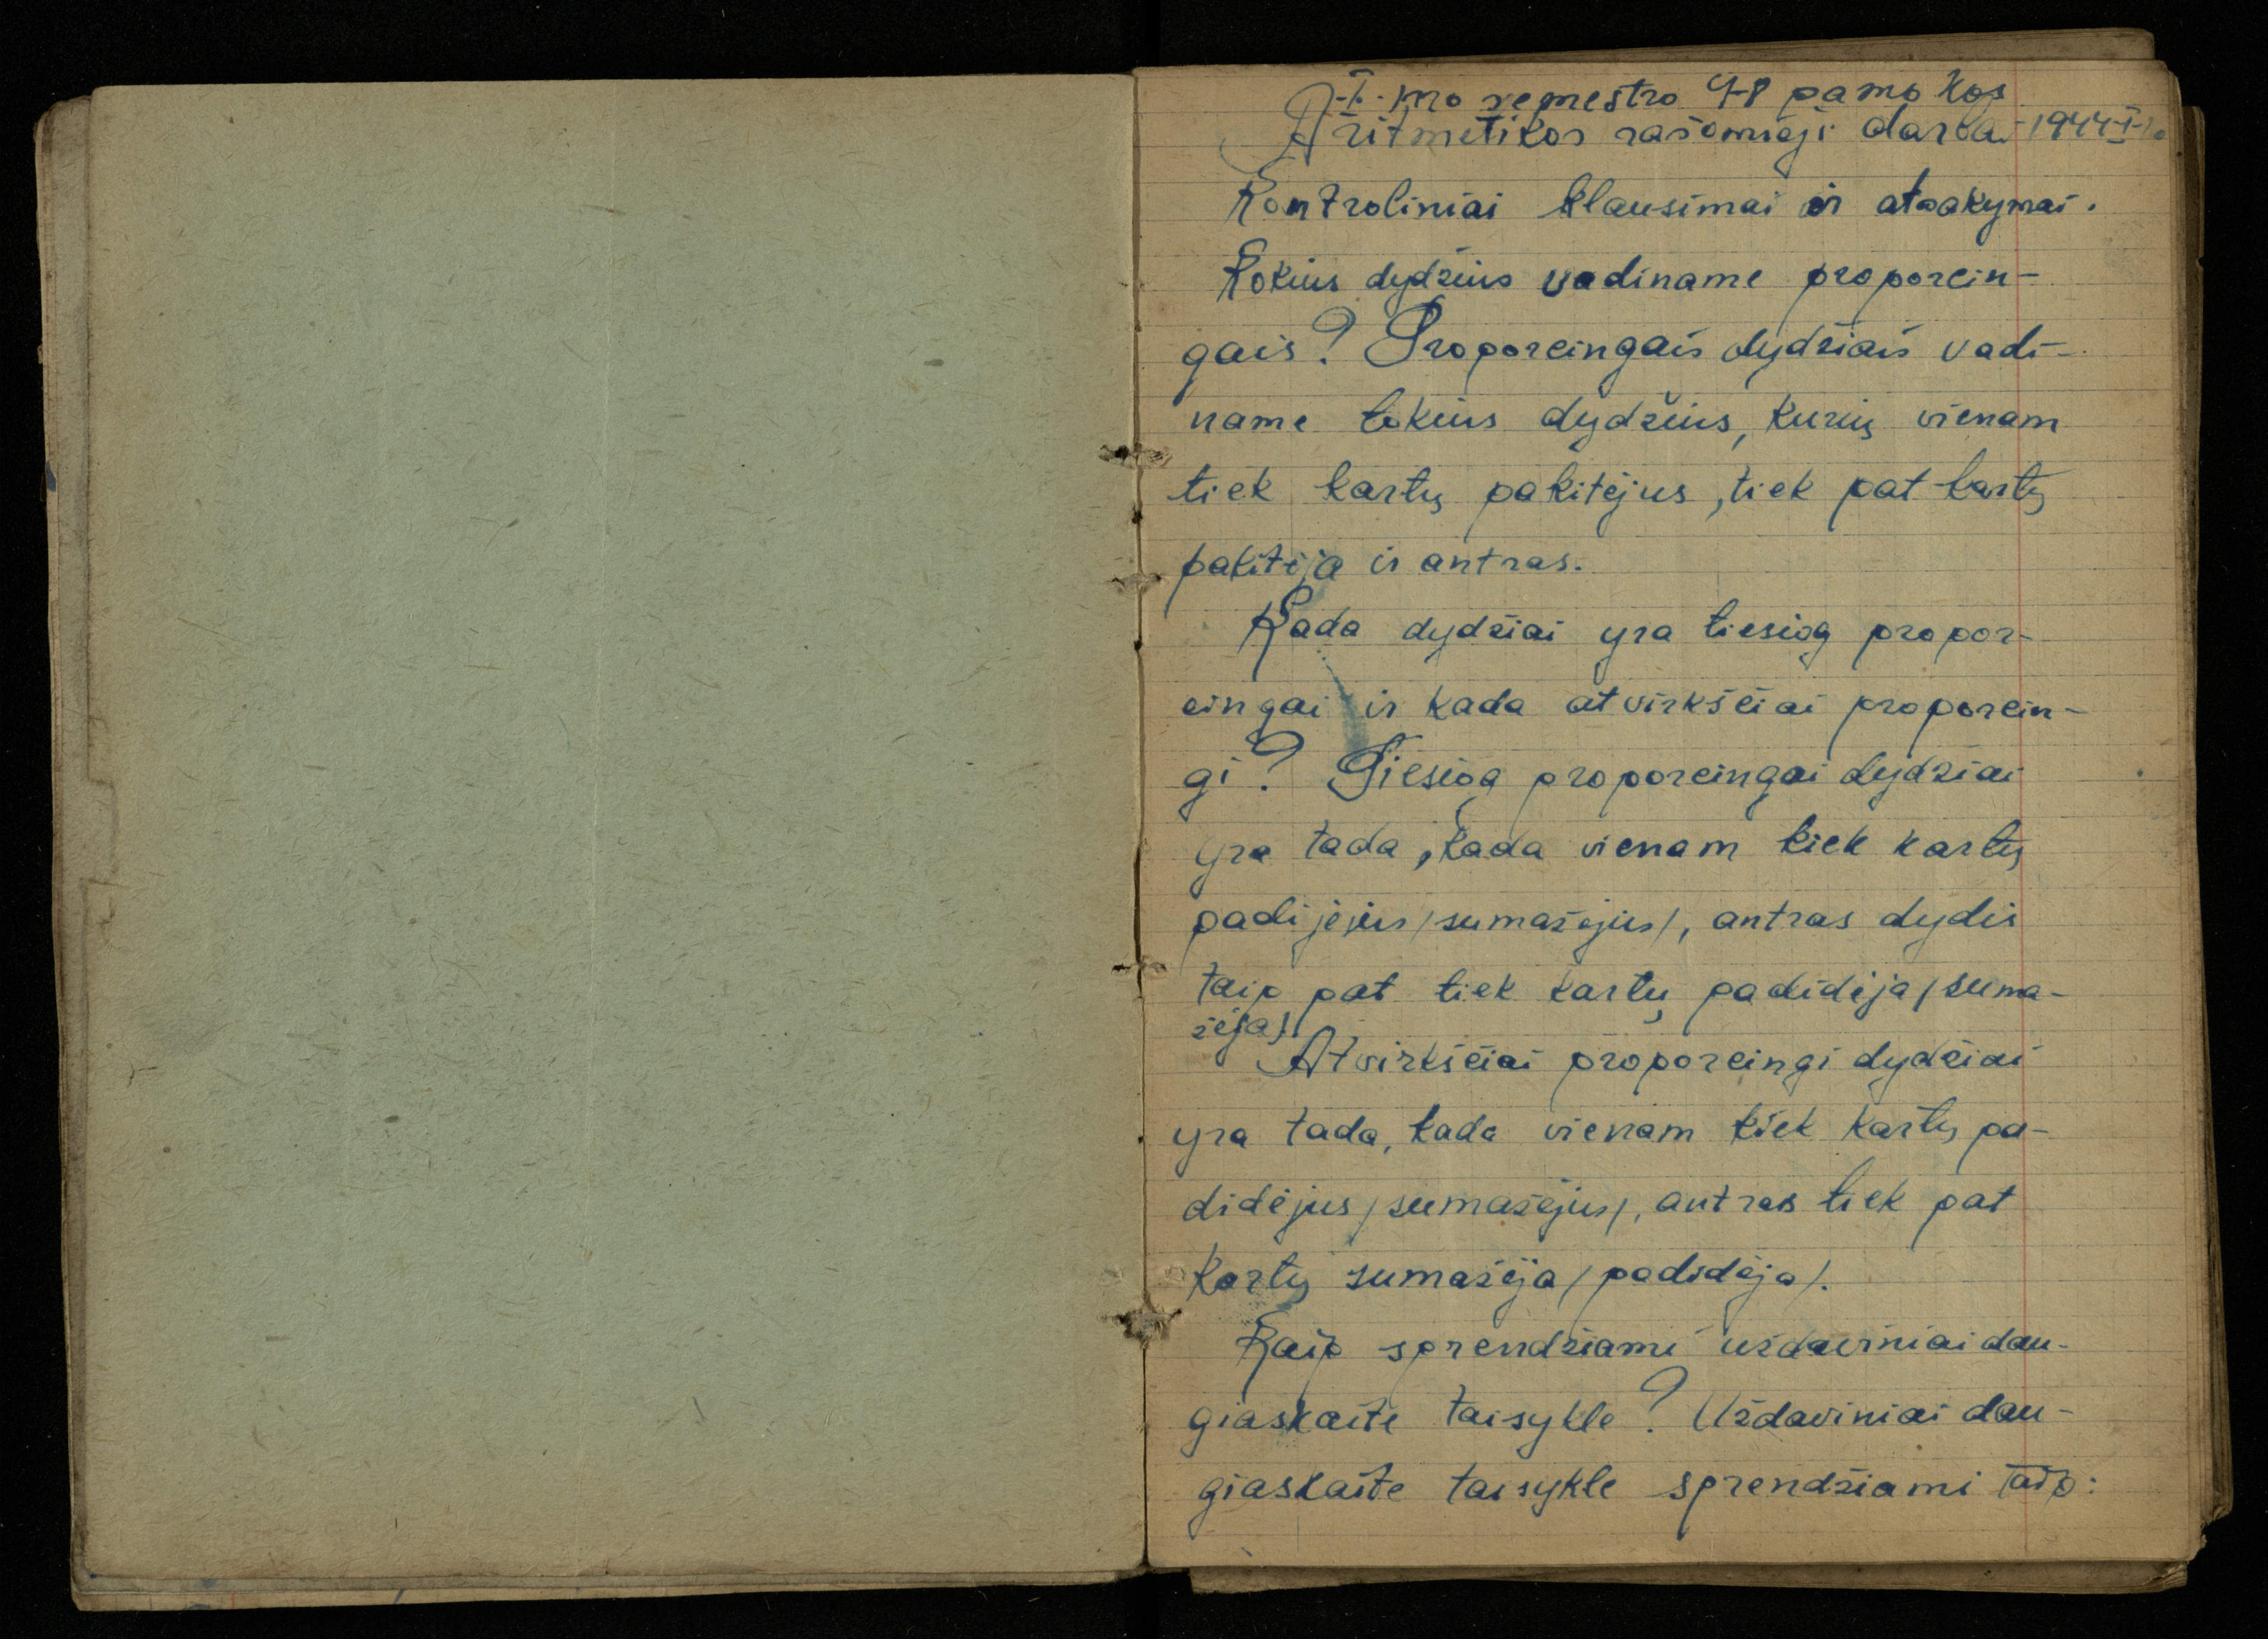 I-mo semestro 7-8 pamokos
Aritmetikos rašomieji darbai 1944-I-10
Kontroliniai klausimai ir atsakymai.
Kokius dydžius vadiname proporcin-
gais? Proporcingais dydžiais vadi-
name tokius dydžius, kurių vienam
tiek kartų pakitėjus, tiek pat kartų
pakitėja ir antras.
Kada dydžiai yra tiesiog propor-
cingai ir kada atvirkščiai proporcin-
gi? Tiesiog proporcingai dydžiai
yra tada, kada vienam kiek kartų
padijėjus /sumažėjus/, antras dydis
taip pat tiek kartų padidėja /suma-
žėja/.
Atvirkščiai proporcingi dydžiai
yra tada, kada vienam kiek kartų pa-
didėjus /sumažėjus/, antras tiek pat
kartų sumažėja /padidėja/.
Kaip sprendžiami uždaviniai dau-
giaskaite taisykle? Uždaviniai dau-
giaskaite taisykle sprendžiami taip: